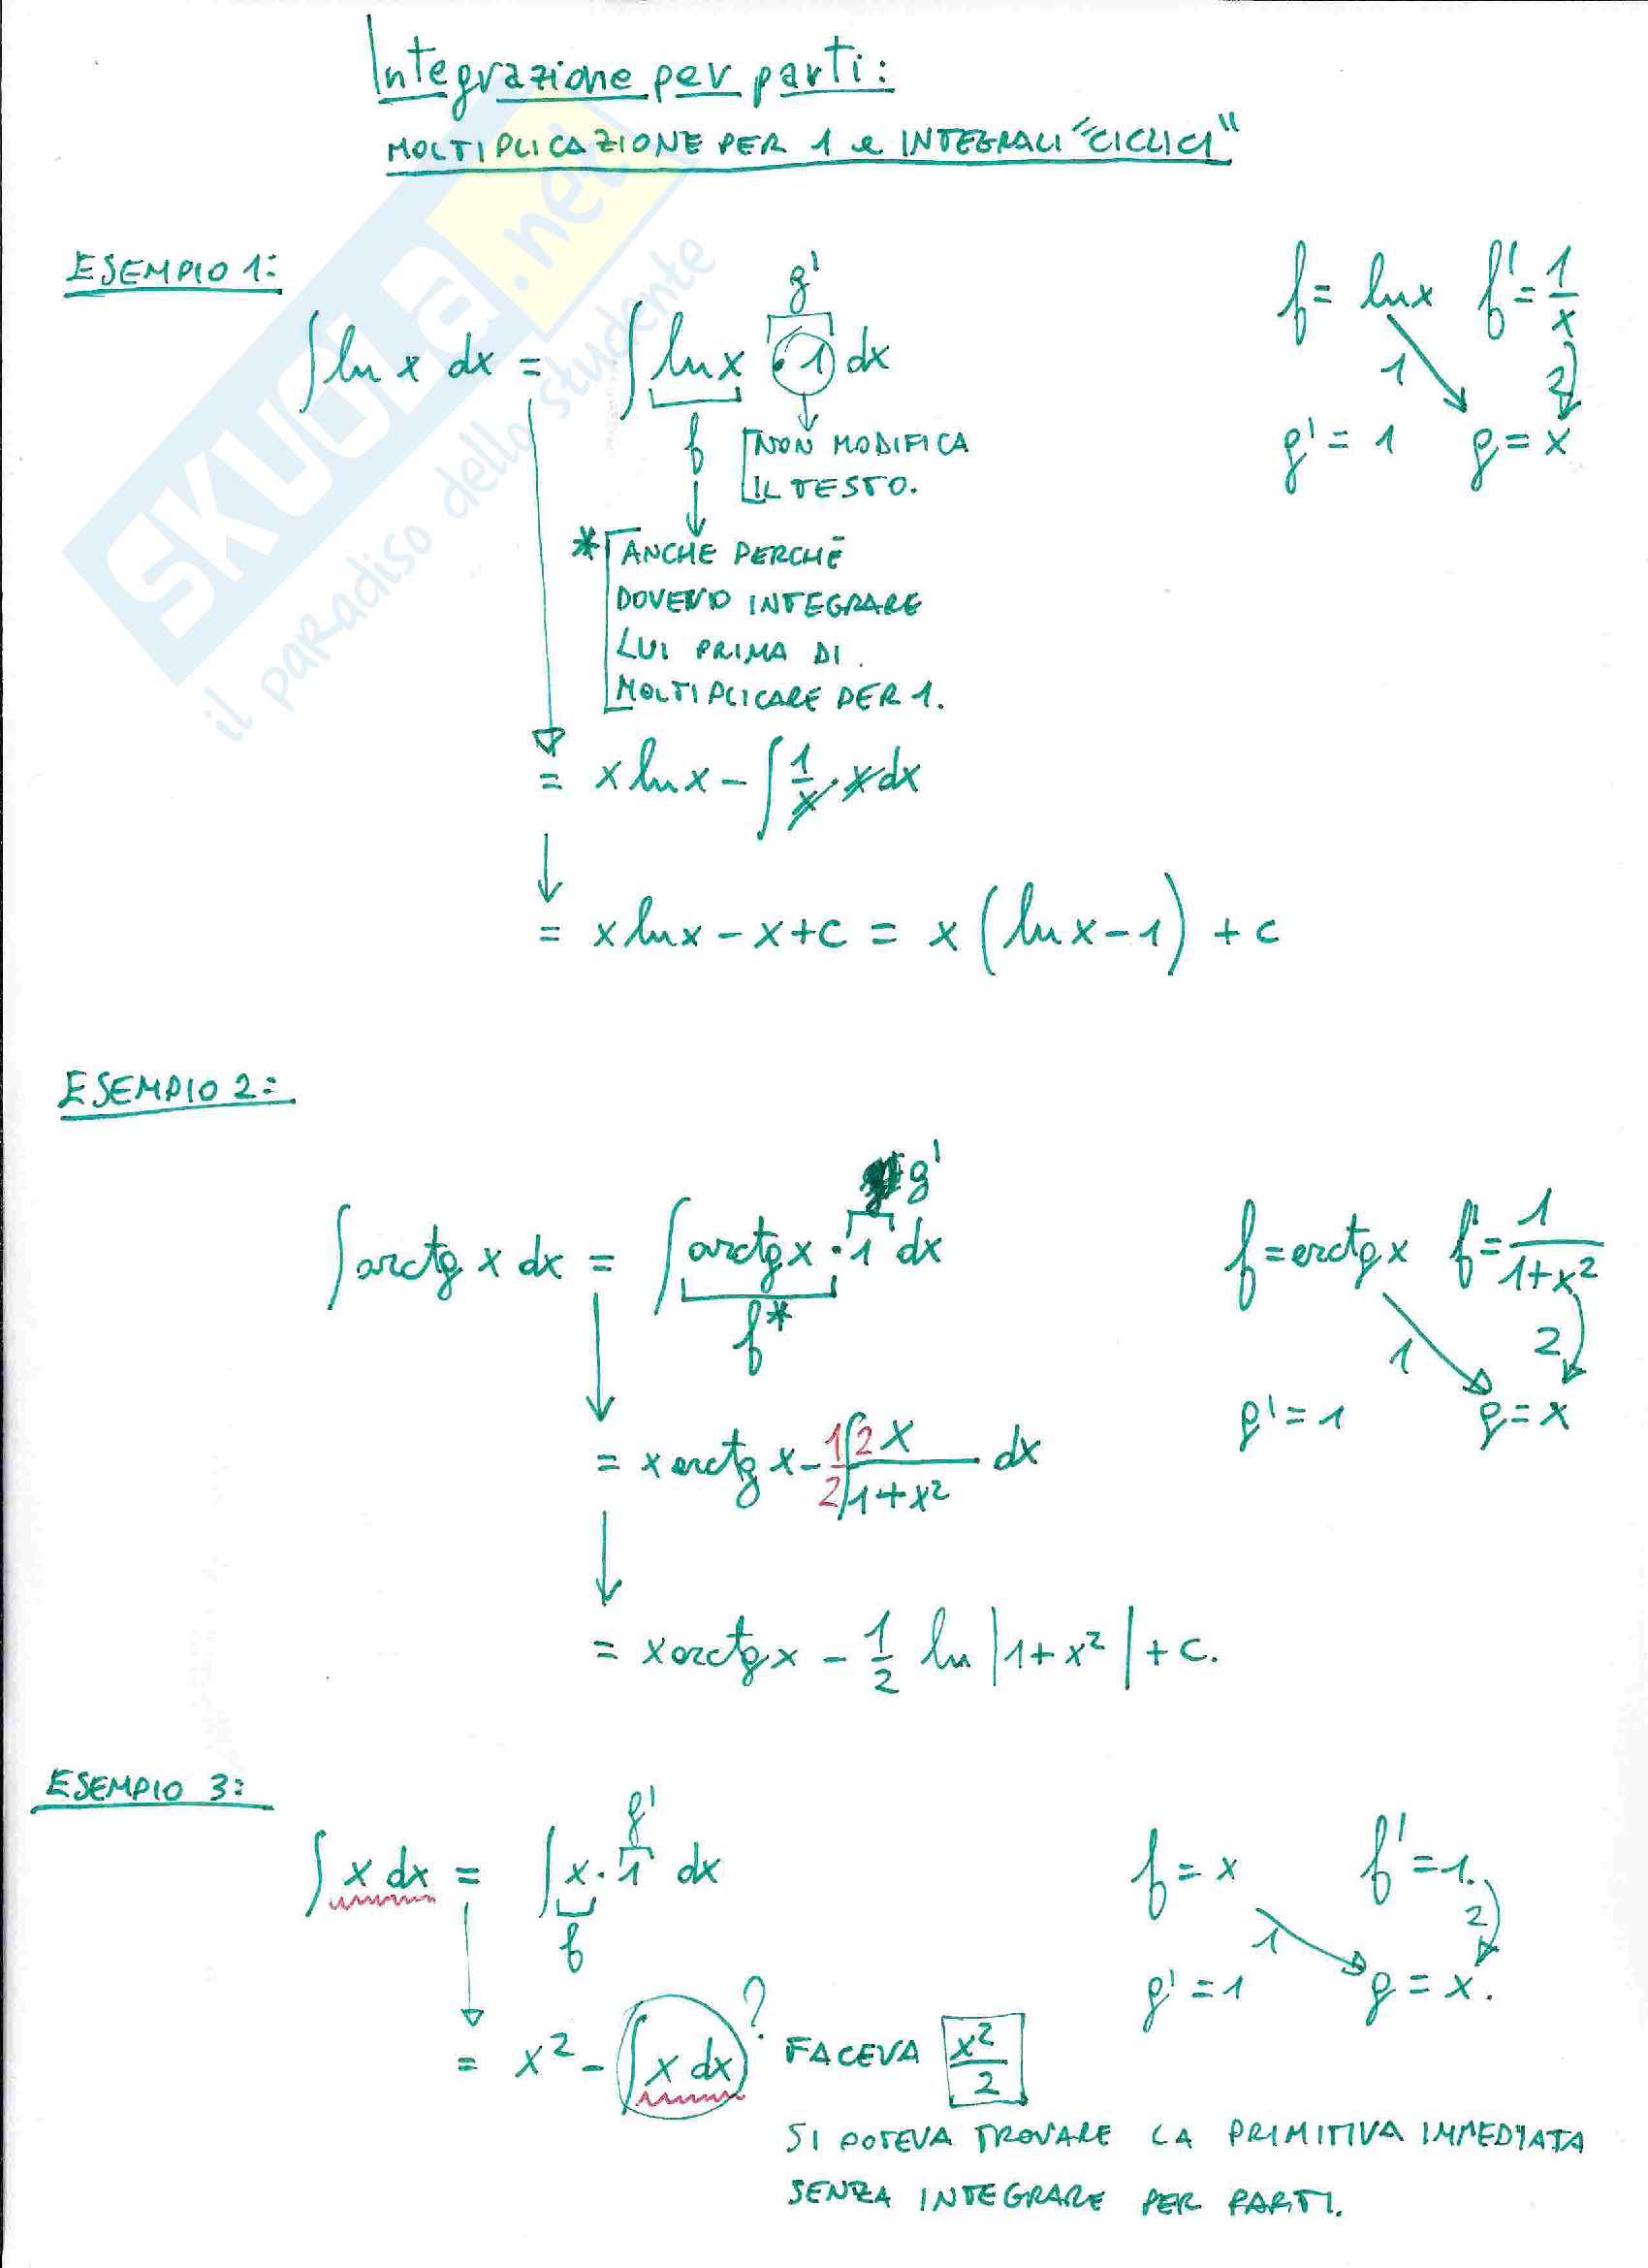 Integrazione per parti:
MOLTIPLICAZIONE PER 1 e INTEGRALI "CICLICI"
SKUOLA.net
il paradiso dello studente
ESEMPIO 1:
g'
∫ ln x dx = ∫ ln x · 1 dx
f
NON MODIFICA
IL TESTO.
* ANCHE PERCHÈ
DOVEVO INTEGRARE
LUI PRIMA DI
MOLTIPLICARE PER 1.
f = ln x f' = 1/x
1 2
g' = 1 g = x
= x ln x - ∫ 1/x · x dx
= x ln x - x + c = x (ln x - 1) + c
ESEMPIO 2:
g'
∫ arctg x dx = ∫ arctg x · 1 dx
f*
f = arctg x f' = 1/(1+x²)
1 2
g' = 1 g = x
= x arctg x - 1/2 ∫ 2x/(1+x²) dx
= x arctg x - 1/2 ln |1+x²| + c.
ESEMPIO 3:
g'
∫ x dx = ∫ x · 1 dx
f
f = x f' = 1.
1 2
g' = 1 g = x.
= x² - ∫ x dx ? FACEVA x²/2
SI POTEVA TROVARE LA PRIMITIVA IMMEDIATA
SENZA INTEGRARE PER PARTI.